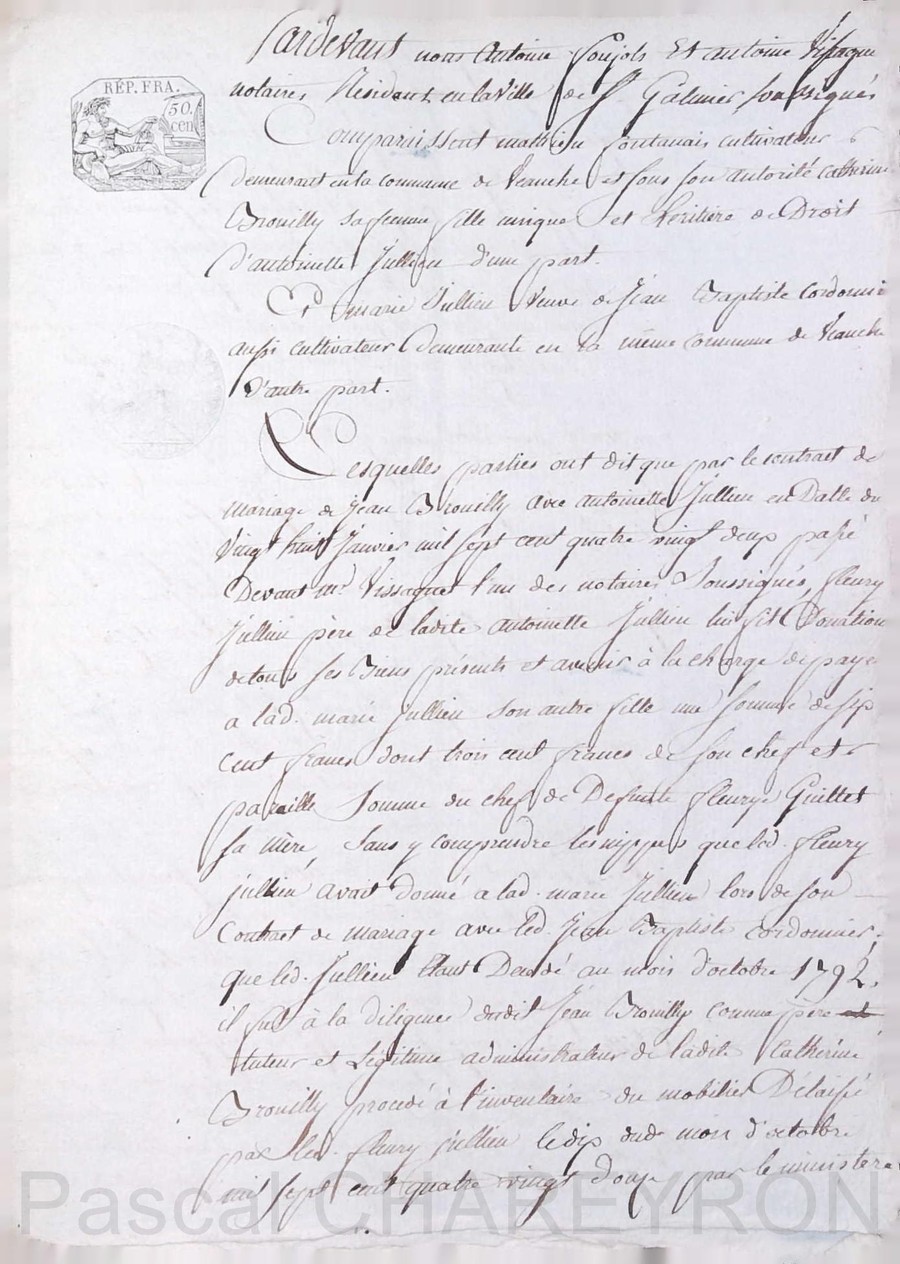 RÉP. FRA.
50.
cen
Pardevant nous Antoine Poujols Et antoine Vissaguet
notaires Résidant en la Ville de St Galmier soussignés
Comparaissent mathieu fontanais cultivateur
demeurant en la commune de Veauche et sous son autorité Catherine
Brouilly sa femme fille unique et héritière de Droit
d'antoinette Jullien d'une part.
Et marie Jullien Veuve de Jean Baptiste Cordonnier
aussi cultivateur Demeurante en la même Commune de Veauche
d'autre part.
Lesquelles parties ont dit que par le contrat de
mariage de Jean Brouilly avec antoinette Jullien en Datte du
Vingt huit Janvier mil sept cent quatre vingt deux passé
Devant me Vissaguet l'un des notaires Soussignés, fleury
Jullien père de ladite antoinette Jullien lui fit Donation
de tous ses Biens présents et avenir à la charge de payer
a lad. marie Jullien son autre fille une somme de six
cent francs dont trois cent francs de son chef et
pareille somme du chef de Defunte fleurye Guillet
sa mère, sans y comprendre les nippes que led. fleury
jullien avait donné a lad. marie Jullien lors de son
Contrat de mariage avec led. Jean Baptiste Cordonnier;
que led. Jullien Etant Decédé au mois d'octobre 1792.
il fut à la diligence dudit Jean Brouilly comme père et
tuteur et légitime administrateur de ladite Catherine
Brouilly procédé à l'inventaire du mobilier Délaissé
par led. fleury jullien le dix dud. mois d'octobre
mil sept cent quatre vingt douze par le ministere
Pascal CHAREYRON